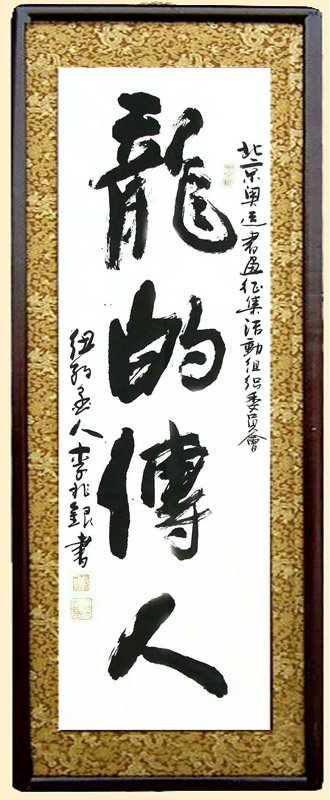 北京奥运書画征集活動組织委員會
龍的傳人
纽約華人李兆銀書